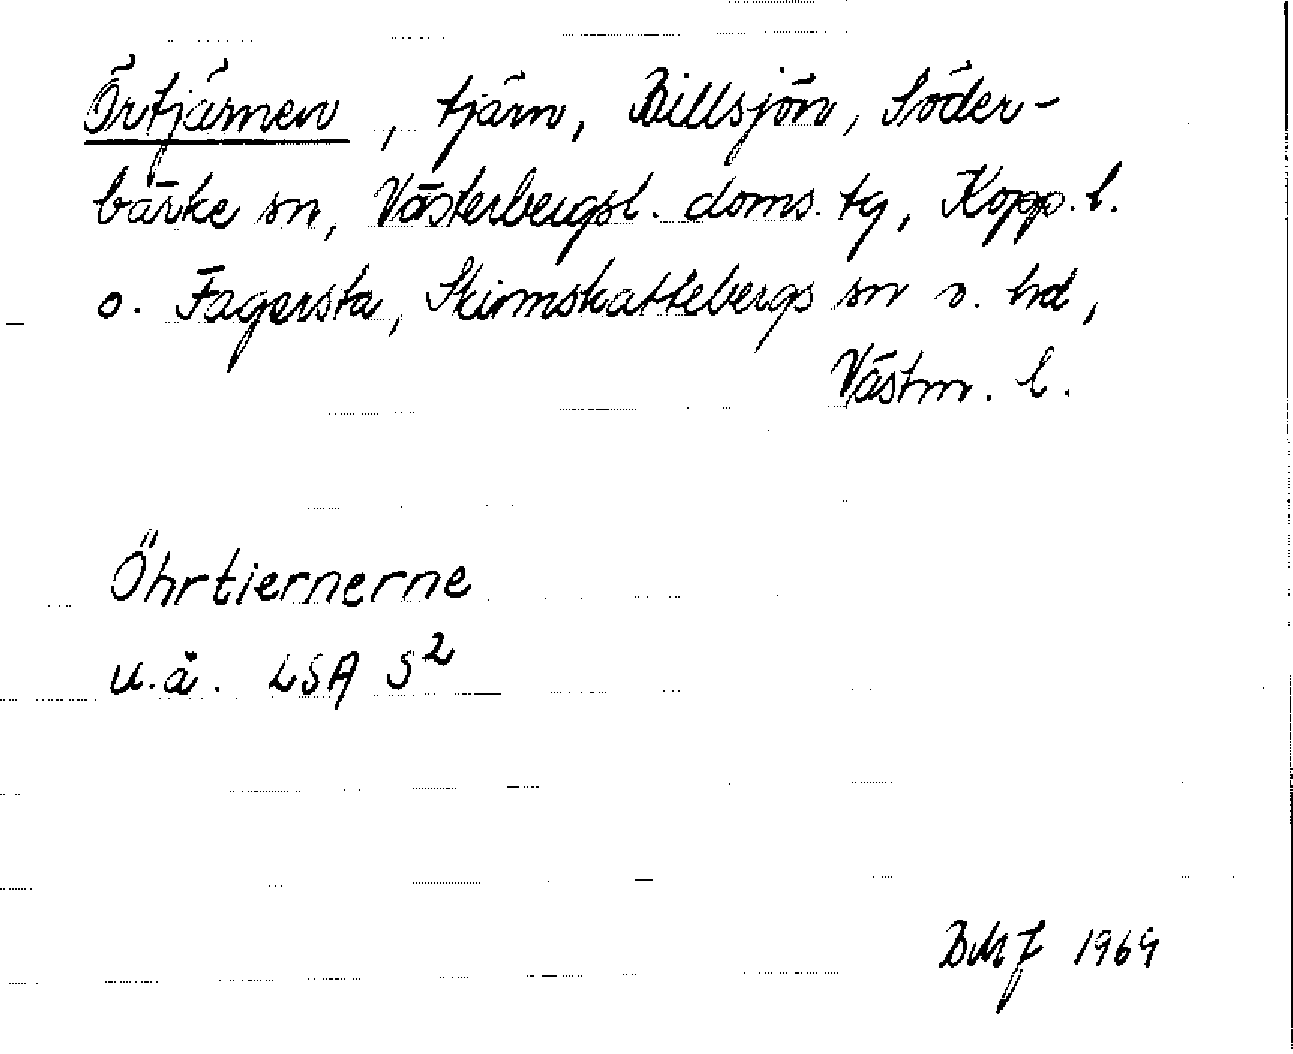 Örtjärnen, tjärn, Billsjön, Söder-
bärke sn, Västerbergsl. doms. tg, Kopp. l.
o. Fagersta, Skinnskattebergs sn o. hd,
Västm. l.
Öhrtiernerne
u.å. LSA S2
BMJ 1969